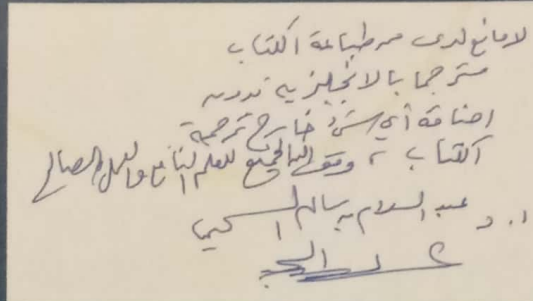 لا مانع لدي من طباعة الكتاب
مترجما بالانجليزية بدون
اضافة أي شيء خارج ترجمة
الكتاب ، وفق الله الجميع للعلم النافع والعمل الصالح
أ. د عبد السلام بن سالم السحيمي